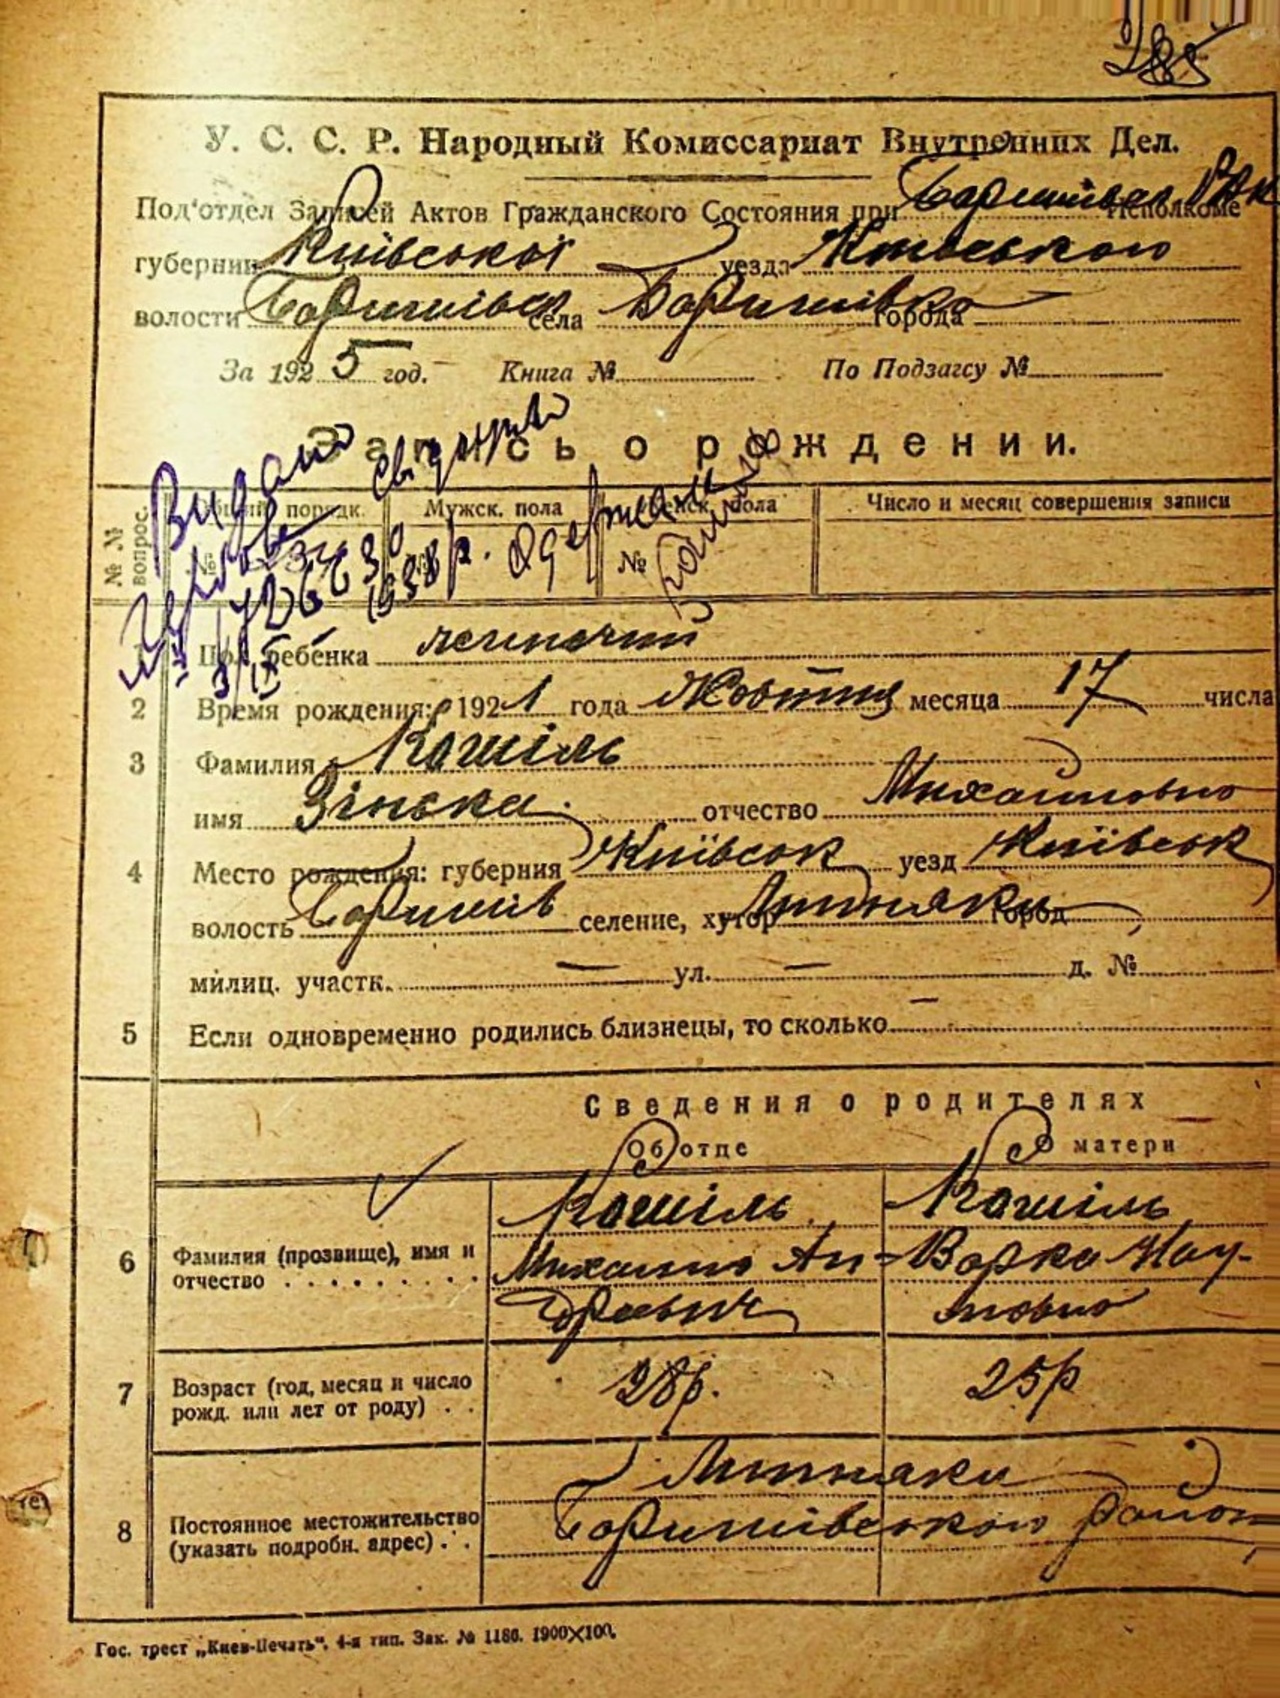 285
У. С. С. Р. Народный Комиссариат Внутренних Дел.
Под'отдел Записей Актов Гражданского Состояния при Баришівськ РВК Исполкоме
губернии Київської уезда Київського
волости Баришівськ села Баришівка города
За 1925 год. Книга № По Подзагсу №
Запись о рождении.
Видано свідоцтво
№ № вопрос. Общий порядк. Мужск. пола Женск. пола Число и месяц совершения записи
№ № №
3/IX 1938 р. Одержала
1 Пол ребенка жіночий
2 Время рождения: 1921 года Жовтня месяца 17 числа
3 Фамилия Кошіль
имя Зінька отчество Михайловна
4 Место рождения: губерния Київськ уезд Київськ
волость Баришів селение, хутор Липняки город
милиц. участк. — ул. — д. №
5 Если одновременно родились близнецы, то сколько —
Сведения о родителях
Об отце О матери
Кошіль Кошіль
6 Фамилия (прозвище), имя и отчество Михайло Ан- Варка Нау-
дреевич мовна
7 Возраст (год, месяц и число рожд. или лет от роду) 28р. 25р
Липняки
8 Постоянное местожительство (указать подробн. адрес) Баришівського район
Гос. трест „Киев-Печать“. 4-я тип. Зак. № 1186. 1900×100.